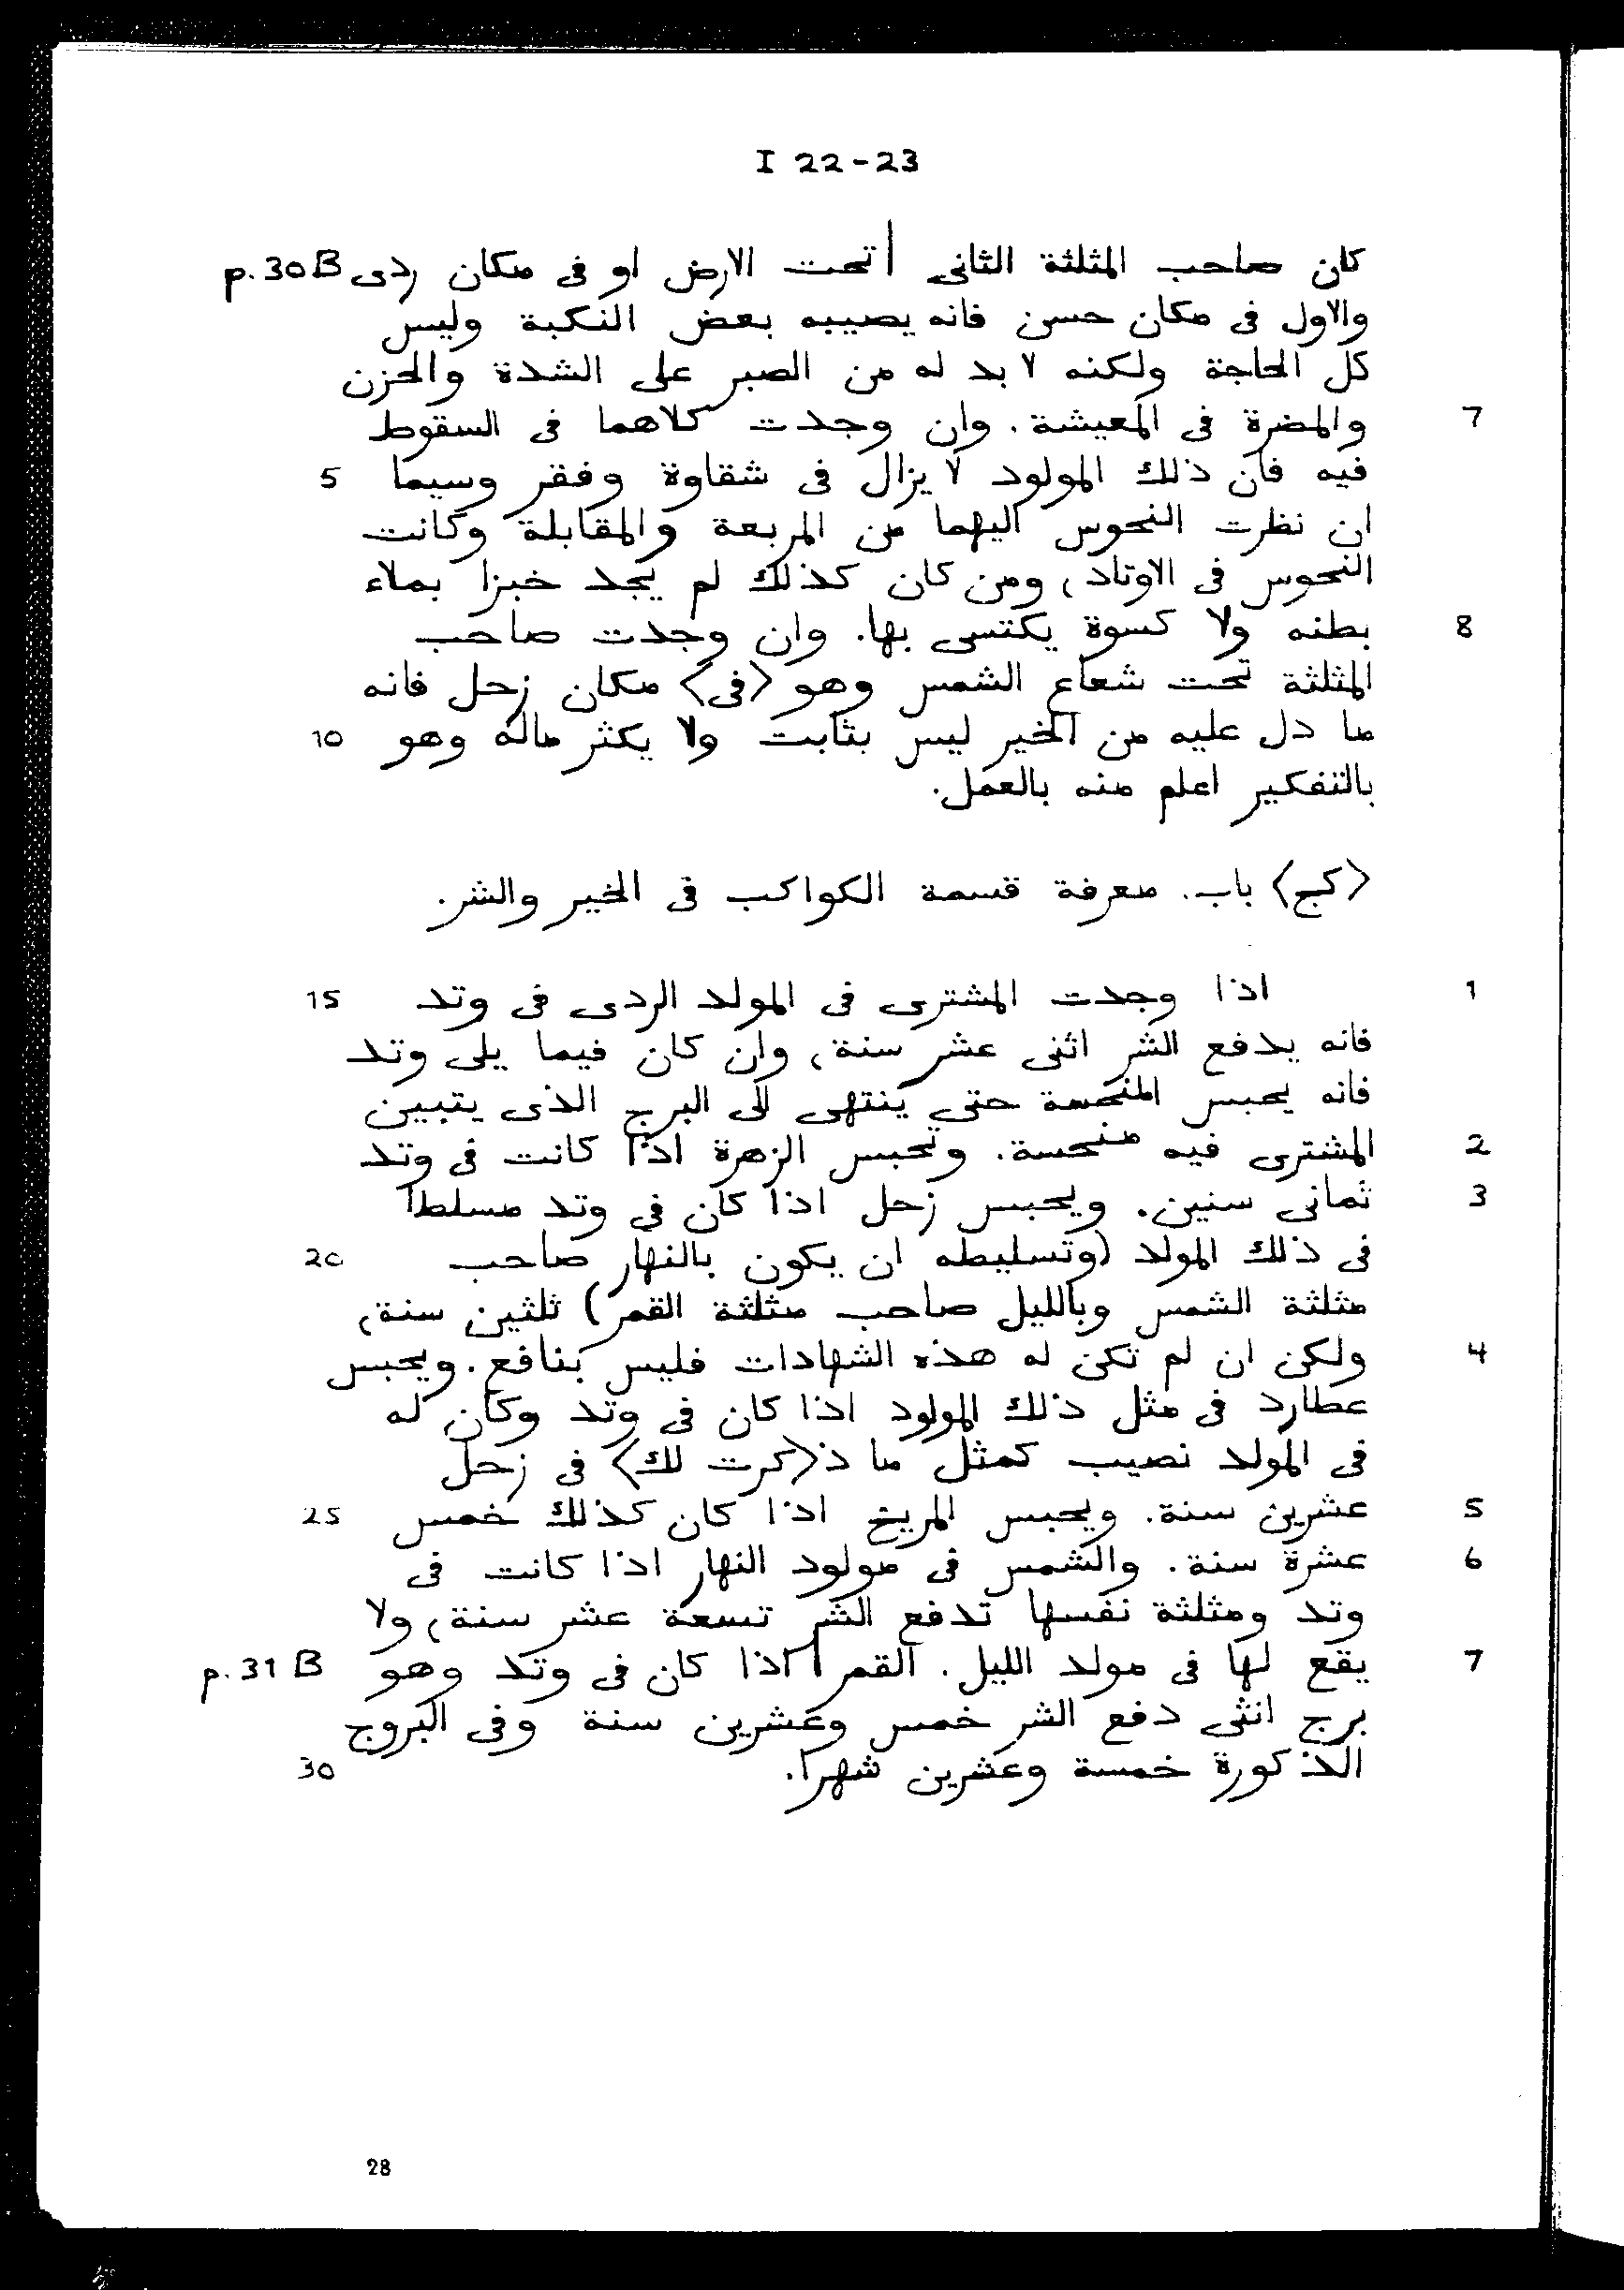 I 22-23
كان صاحب المثلثة الثانى | تحت الارض او فى مكان ردى p. 30 B
والاول فى مكان حسن فانه يصيبه بعض النكبة وليس
كل الحاجة ولكنه لا بد له من الصبر على الشدة والحزن
7 والمضرة فى المعيشة. وان وجدت كلاهما فى السقوط
فيه فان ذلك المولود لا يزال فى شقاوة وفقر وسيما 5
ان نظرت النحوس اليهما من المربعة والمقابلة وكانت
النحوس فى الاوتاد، ومن كان كذلك لم يجد خبزا بملاء
8 بطنه ولا كسوة يكتسى بها. وان وجدت صاحب
المثلثة تحت شعاع الشمس وهو <فى> مكان زحل فانه
ما دل عليه من الخير ليس بثابت ولا يكثر ماله وهو 10
بالتفكير اعلم منه بالعمل.
<كج> باب. معرفة قسمة الكواكب فى الخير والشر.
1 اذا وجدت المشترى فى المولد الردى فى وتد 15
فانه يدفع الشر اثنى عشر سنة، وان كان فيما يلى وتد
فانه يحبس المنحسة حتى ينتهى الى البرج الذى يتبين
2 المشترى فيه منحسة. وتحبس الزهرة اذا كانت فى وتد
3 ثمانى سنين. ويحبس زحل اذا كان فى وتد مسلطا
فى ذلك المولد (وتسليطه ان يكون بالنهار صاحب 20
مثلثة الشمس وبالليل صاحب مثلثة القمر) ثلثين سنة،
4 ولكن ان لم تكن له هذه الشهادات فليس بنافع. ويحبس
عطارد فى مثل ذلك المولود اذا كان فى وتد وكان له
فى المولد نصيب كمثل ما ذ<كرت لك> فى زحل
5 عشرين سنة. ويحبس المريخ اذا كان كذلك خمس 25
6 عشرة سنة. والشمس فى مولود النهار اذا كانت فى
وتد ومثلثة نفسها تدفع الشر تسعة عشر سنة، ولا
7 يقع لها فى مولد الليل. القمر | اذا كان فى وتد وهو p. 31 B
برج انثى دفع الشر خمس وعشرين سنة وفى البروج
الذكورة خمسة وعشرين شهرا. 30
28